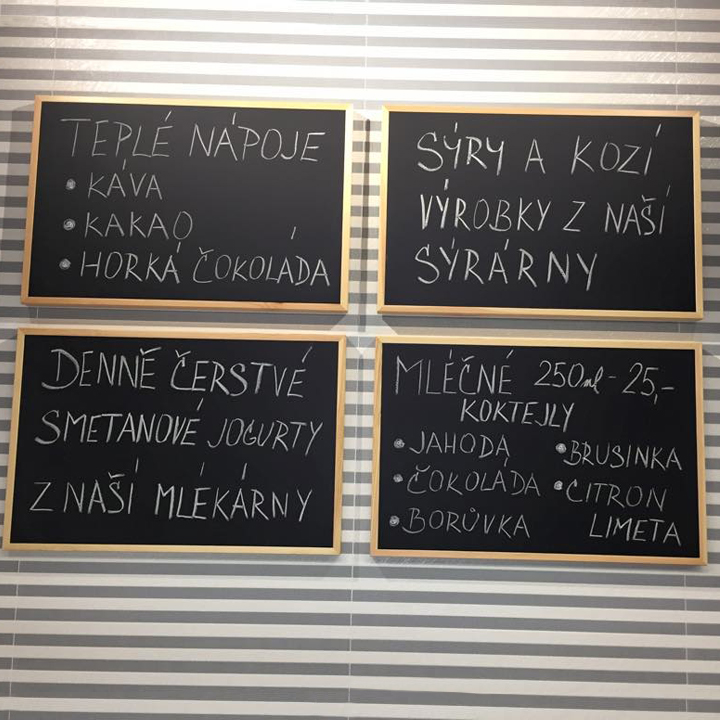 TEPLÉ NÁPOJE
• KÁVA
• KAKAO
• HORKÁ ČOKOLÁDA
SÝRY A KOZÍ
VÝROBKY Z NAŠÍ
SÝRÁRNY
DENNĚ ČERSTVÉ
SMETANOVÉ JOGURTY
Z NAŠÍ MLÉKÁRNY
MLÉČNÉ 250ml - 25,-
KOKTEJLY
• JAHODA
• ČOKOLÁDA
• BORŮVKA
• BRUSINKA
• CITRON
LIMETA